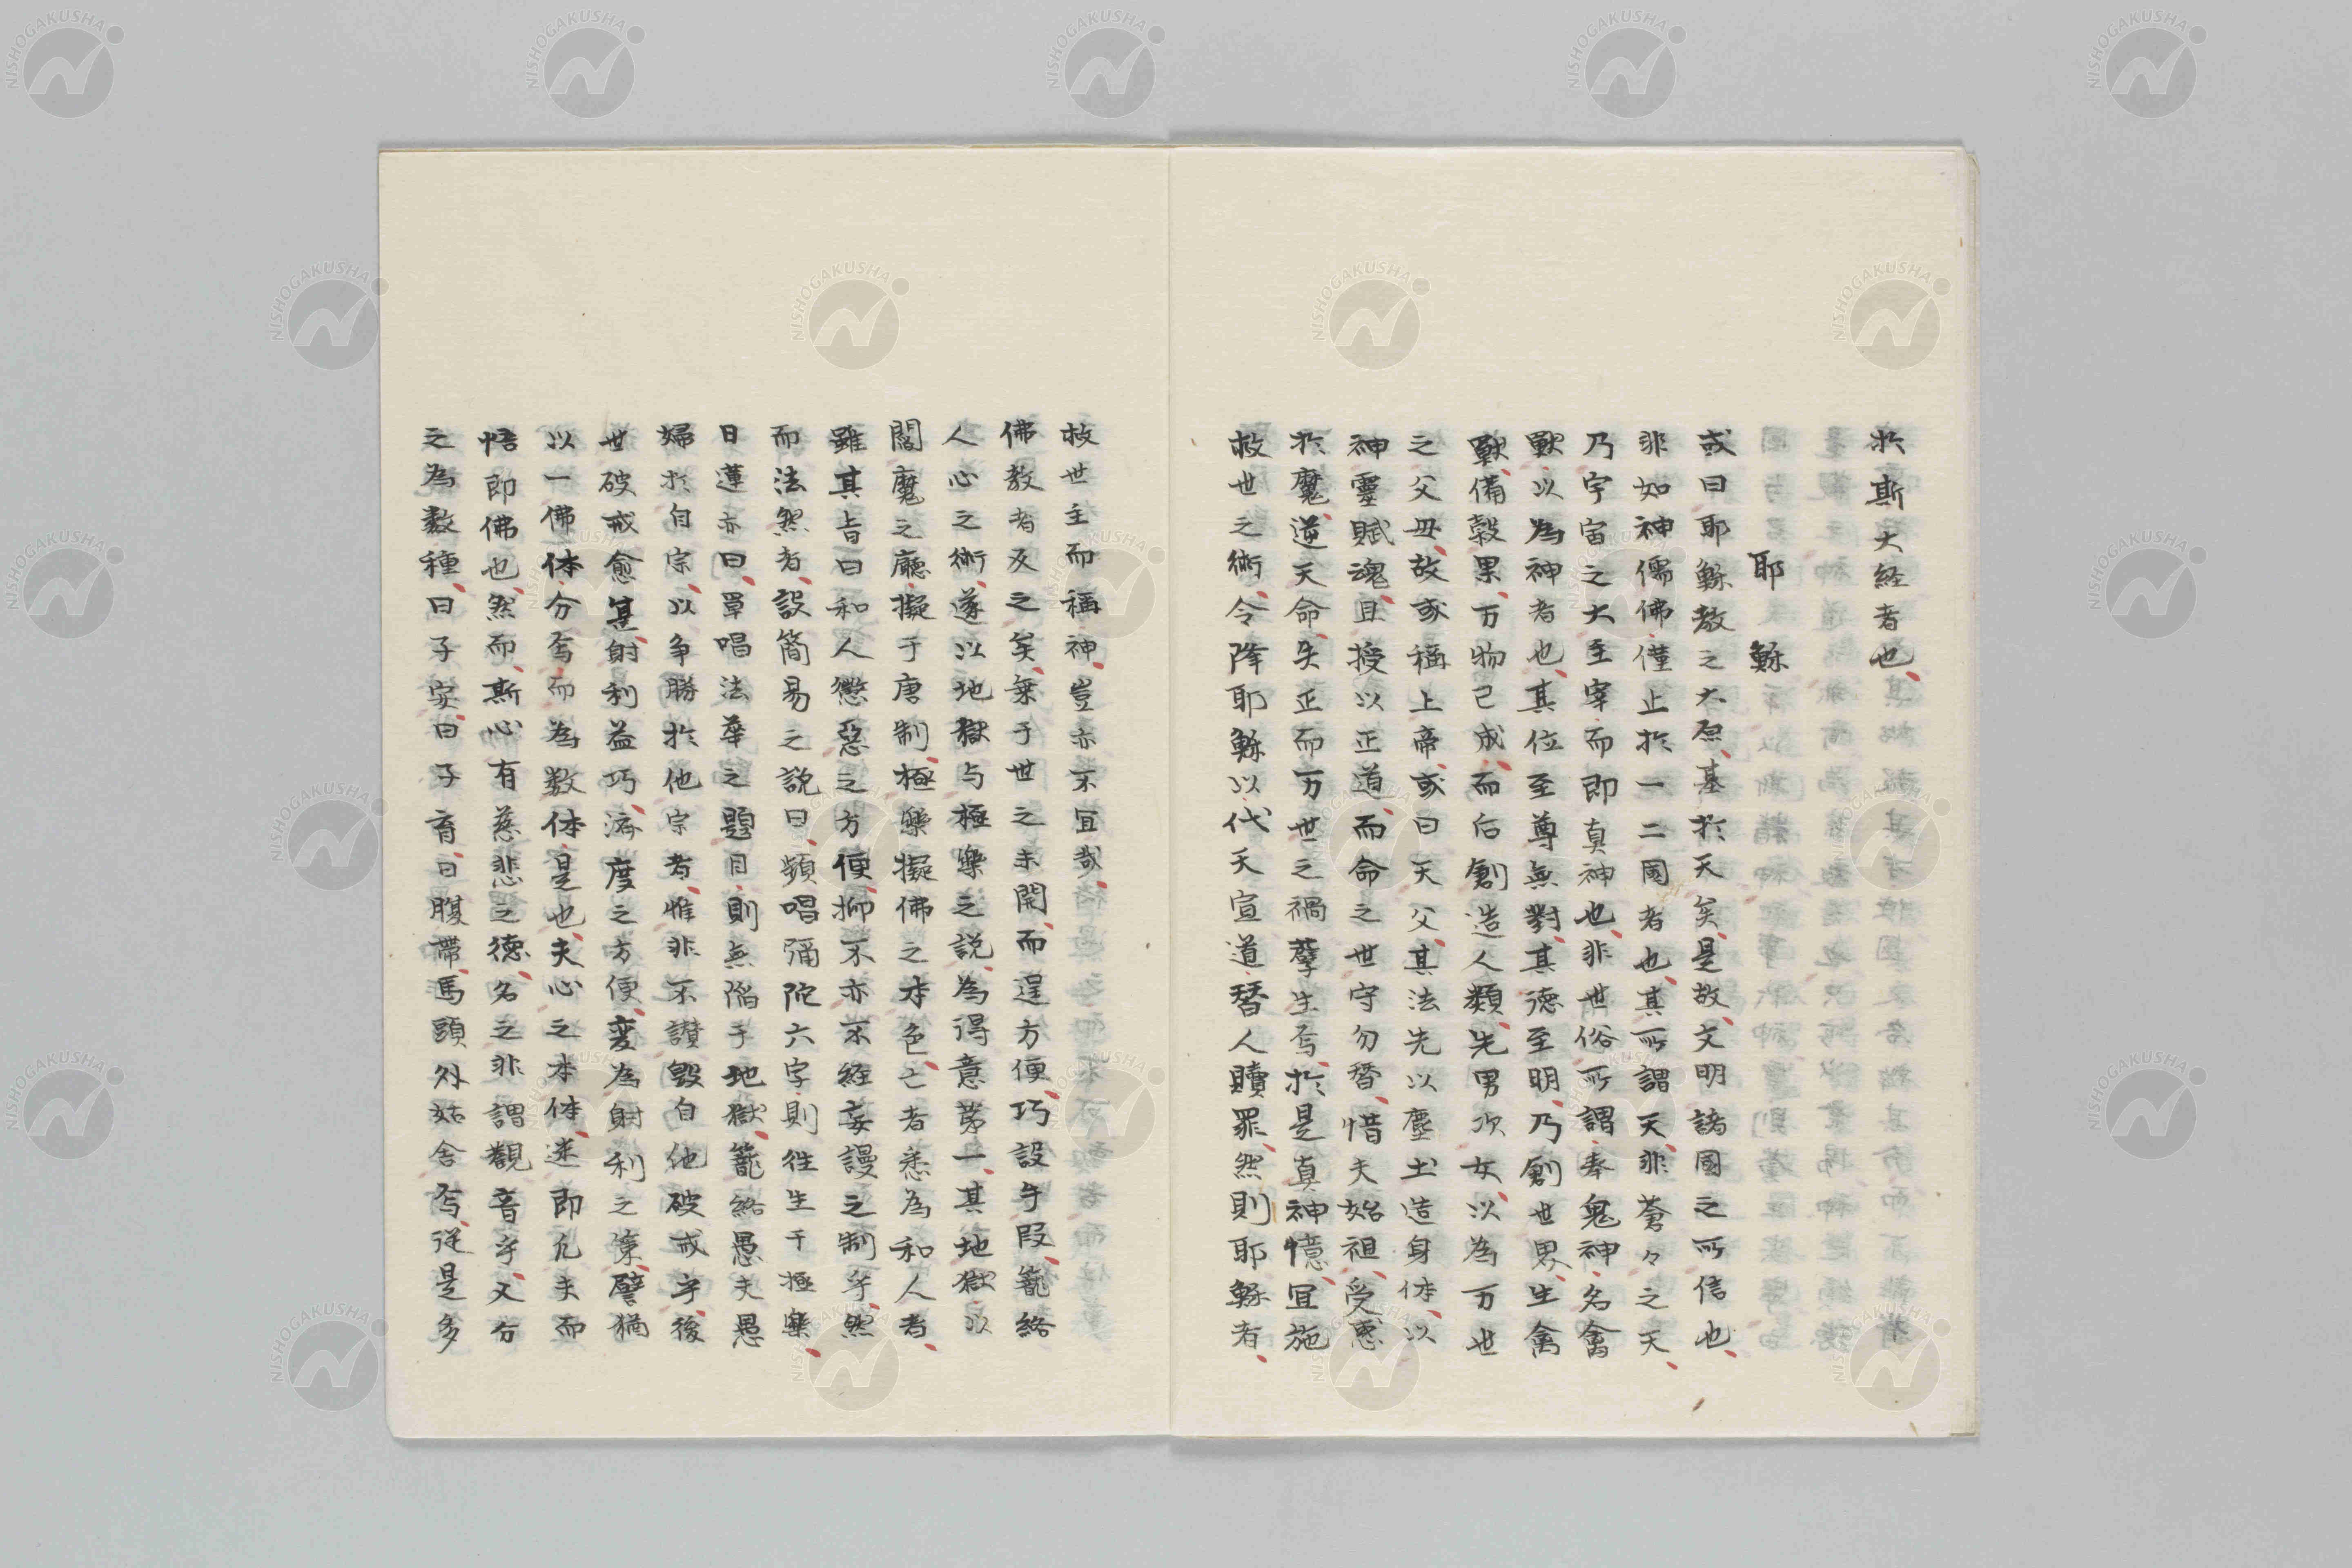 於斯大経者也
耶穌
或曰耶穌教之大原基於天矣是故文明諸國之所信也
非如神儒佛僅止於一二國者也其所謂天非蒼々之天
乃宇宙之大主宰而即真神也非世俗所謂奉鬼神名禽
獸以為神者也其位至尊無對其德至明乃創世界生禽
獸備穀果万物已成而后創造人類先男次女以為万世
之父母故或稱上帝或曰天父其法先以塵土造身体以
神靈賦魂且授以正道而命之世守勿替惜夫始祖受惑
於魔逆天命失正而万世之禍孽生焉於是真神憶宜施
救世之術令降耶穌以代天宣道替人贖罪然則耶穌者
救世主而稱神豈亦不宜哉
佛教者反之矣乗于世之未開而逞方便巧設手段籠絡
人心之術遂以地獄与極樂之説為得意第一其地獄以
閻魔之廳擬于唐制極樂擬佛之本色亡者悉為和人者
雖其旨曰和人懲惡之方便抑不亦不経妄謾之制乎然
而法然者設簡易之説曰頻唱彌陀六字則徃生于極樂
日蓮亦曰單唱法華之題目則無陥于地獄籠絡愚夫愚
婦於自宗以争勝於他宗者惟非不讃毀自他破戒乎後
世破戒愈甚射利益巧済度之方便変為射利之策譬猶
以一佛体分焉而為数体是也夫心之本体迷即凡夫而
悟即佛也然而斯心有慈悲之德名之非謂觀音乎又分
之為数種曰子安曰子育曰腹帶馬頭外姑舍焉従是多